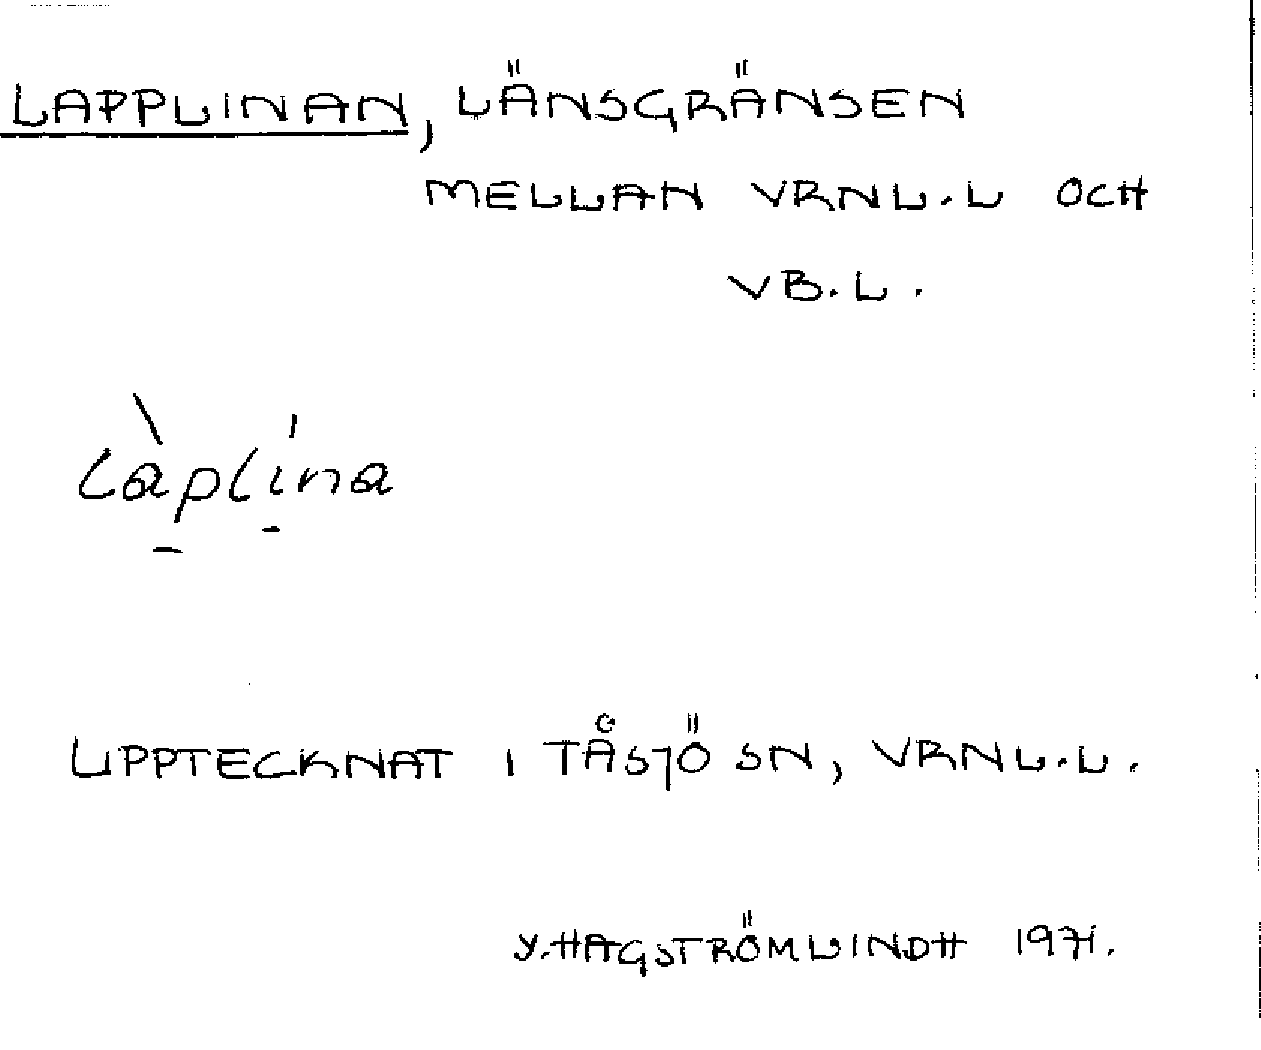 LAPPLINAN, LÄNSGRÄNSEN
MELLAN VRNL.L OCH
VB.L.
làplína
UPPTECKNAT I TÅSJÖ SN, VRNL.L.
Y. HAGSTRÖM LINDH 1971.